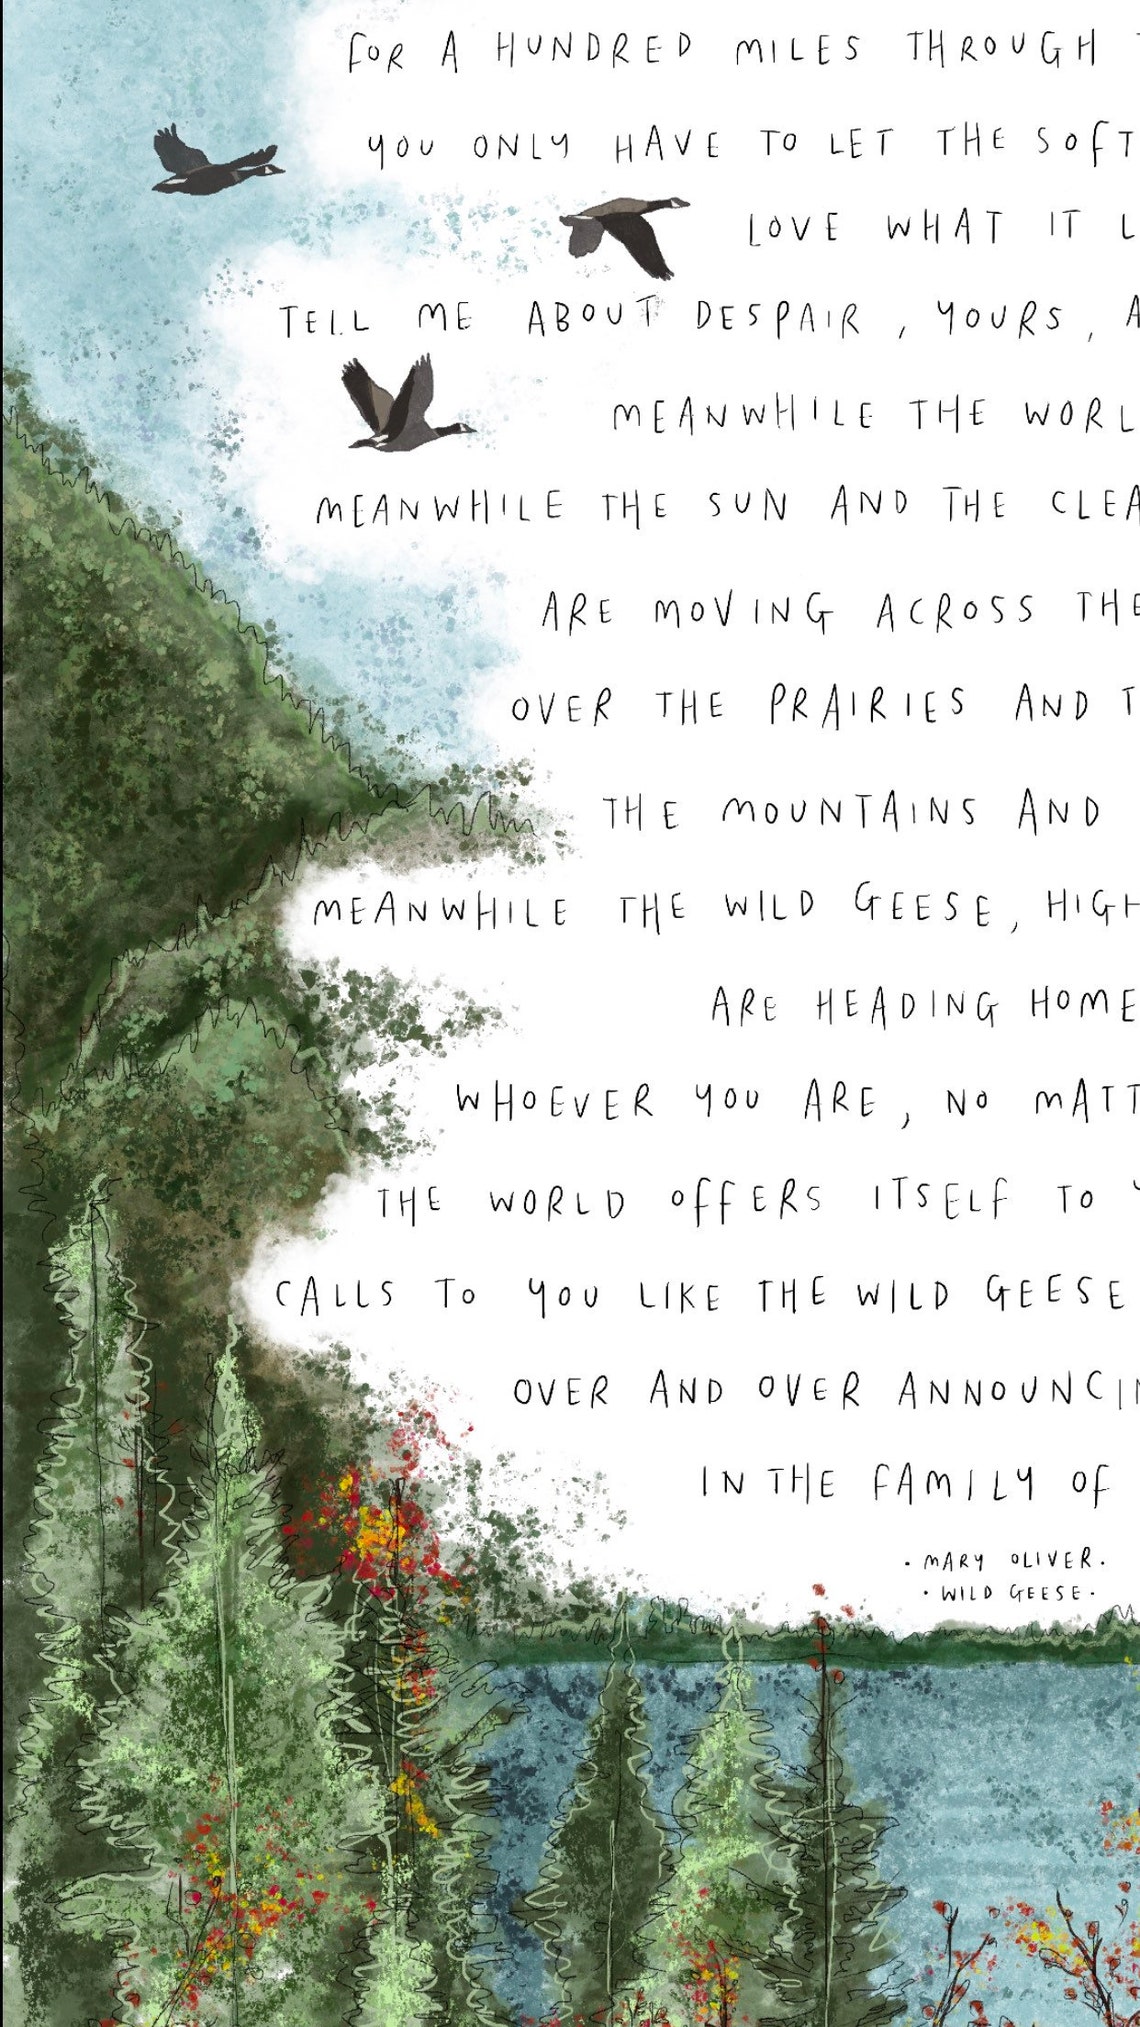 FOR A HUNDRED MILES THROUGH
YOU ONLY HAVE TO LET THE SOFT
LOVE WHAT IT L
TELL ME ABOUT DESPAIR, YOURS, A
MEANWHILE THE WORL
MEANWHILE THE SUN AND THE CLEA
ARE MOVING ACROSS THE
OVER THE PRAIRIES AND T
THE MOUNTAINS AND
MEANWHILE THE WILD GEESE, HIGH
ARE HEADING HOME
WHOEVER YOU ARE, NO MATT
THE WORLD OFFERS ITSELF TO Y
CALLS TO YOU LIKE THE WILD GEESE
OVER AND OVER ANNOUNCIN
IN THE FAMILY OF
· MARY OLIVER.
· WILD GEESE ·